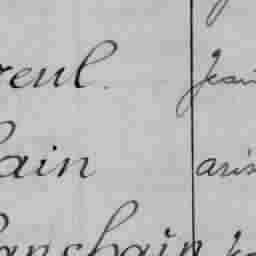 reul. Jean
lain aris
lanchain